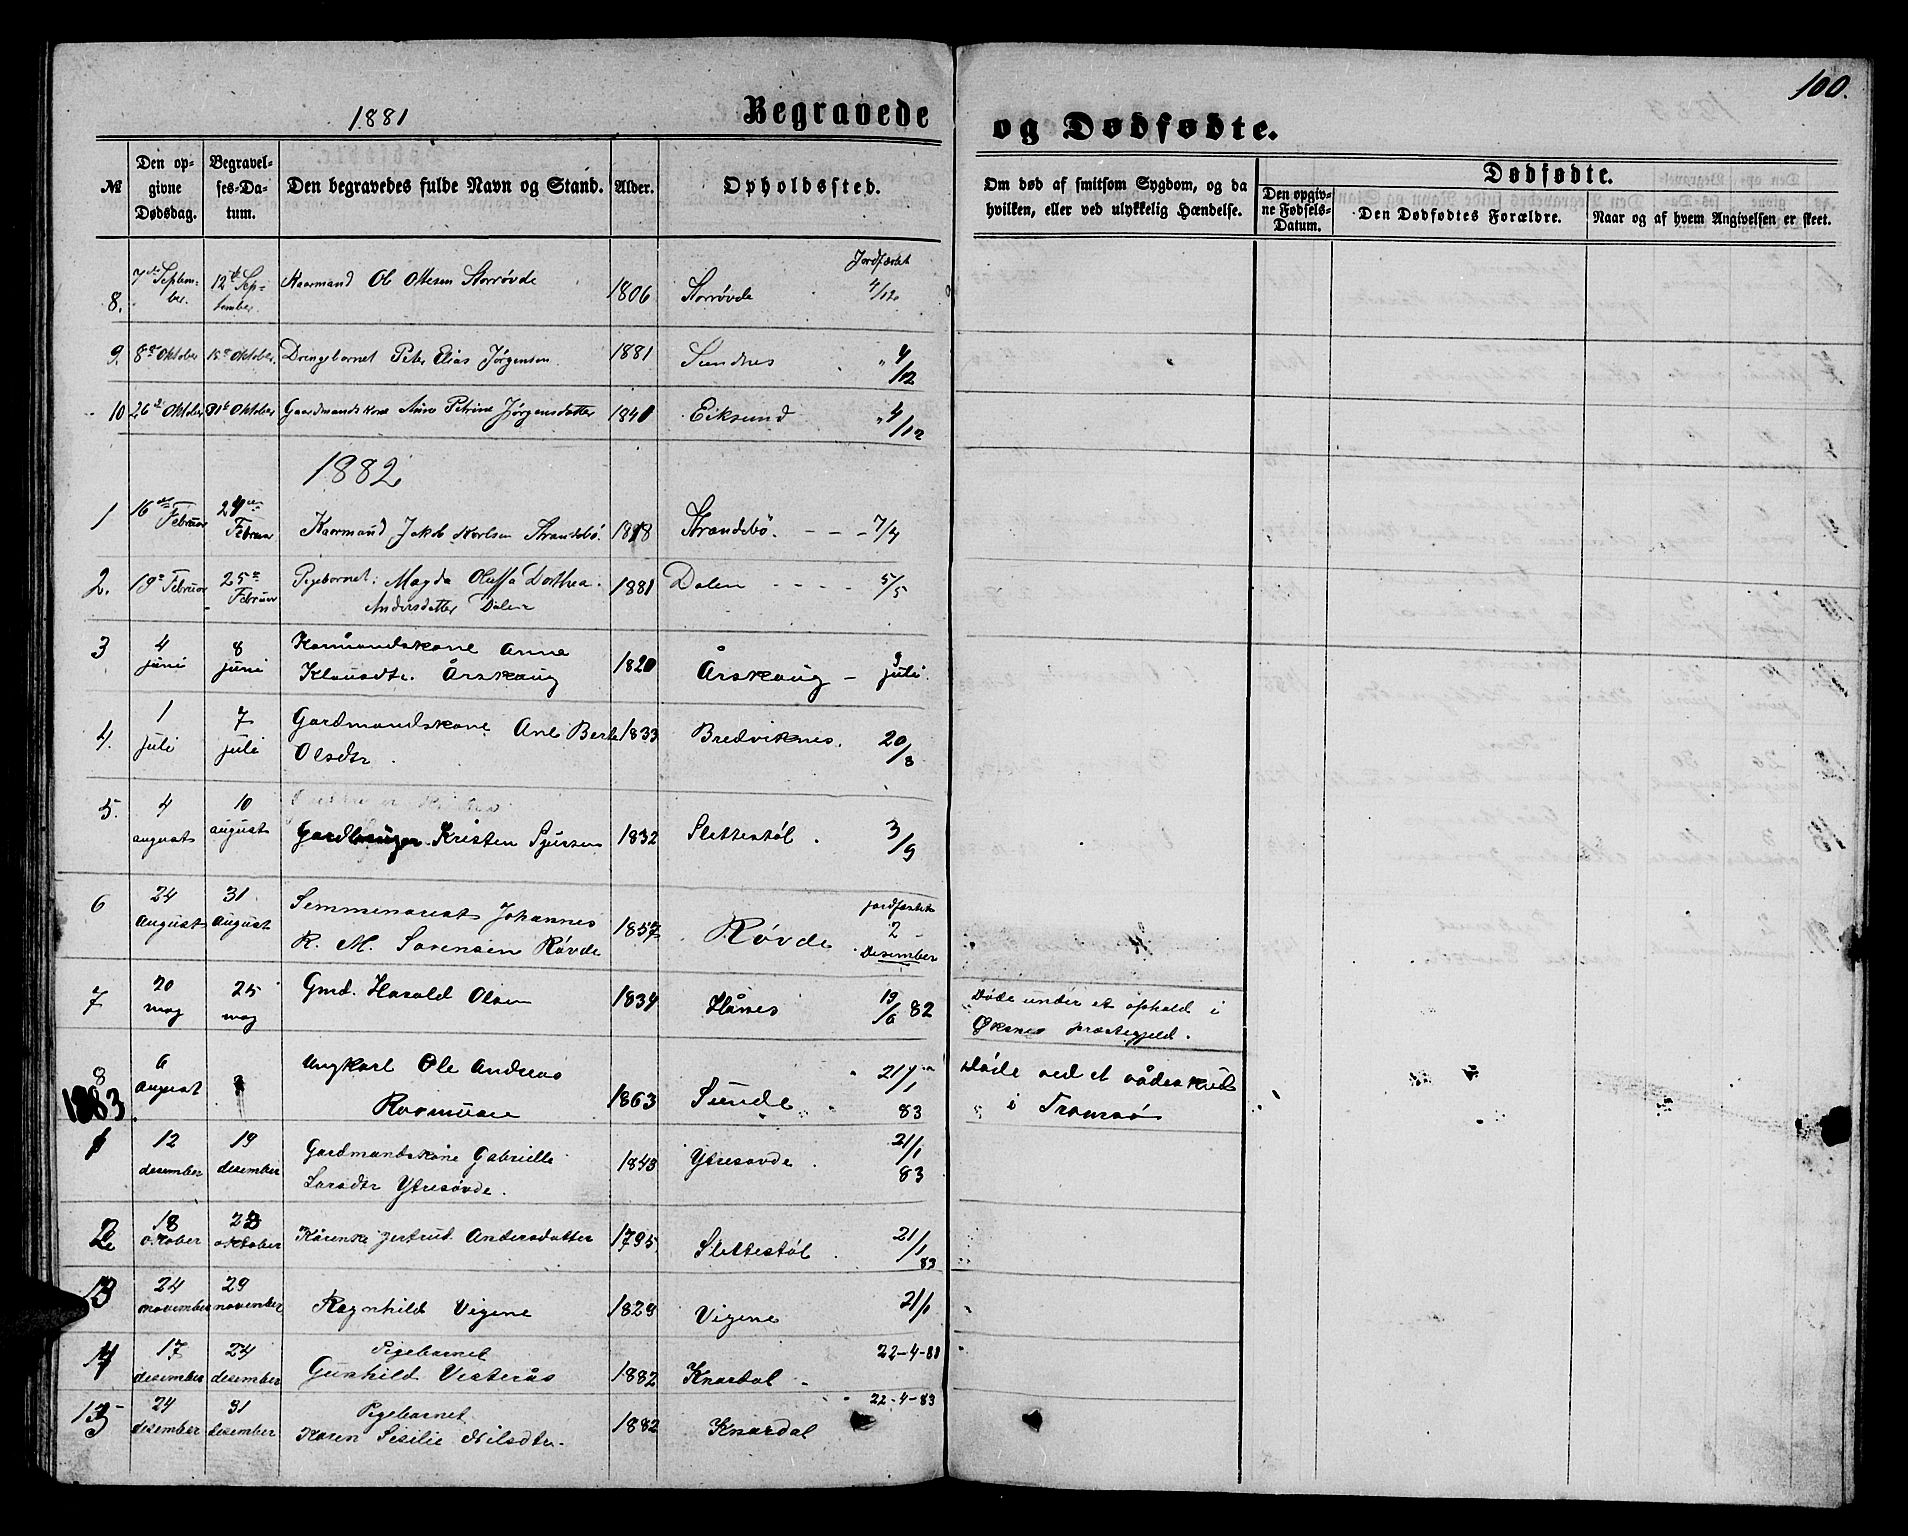 100.
1881
Begravede
og Dødfødte.
№
Den op-
givne
Dødsdag.
Begravel-
ses-Da-
tum.
Den begravedes fulde Navn og Stand.
Alder.
Opholdssted.
Om død af smitsom Sygdom, og da
hvilken, eller ved ulykkelig Hændelse.
Dødfødte.
Den opgiv-
ne Fødsels-
Datum.
Den Dødfødtes Forældre.
Naar og af hvem Angivelsen er skeet.
8. 7de Septem-
ber. 12te Sep-
tember Kaarmand Ol Ottesen Storrøvde 1806 Storrøvde Jordfæstet
4/12
9. 8de Oktober 15de Oktober Drengebarnet Peter Elias Jørgensen 1881 Sundnes " 4/12
10 26de Oktober 31te Oktober Gaardmandskone Ane Petrine Jørgensdatter 1841 Eiksund " 4/12
1882
1 16de Februar 24de Februar Kaarmand Jakob Karlsen Strandebø. 1818 Strandebø. - - - 7/4
2. 18de Februar 25de Februar Pigebarnet: Magda Oluffa Dorthea
Andersdatter Dalen 1881 Dalen - - - 5/5
3 4 juni 8 juni Kårmandskone Anna
Klausdtr. Årskaug 1820 Årskaug - 9 juli.
4. 1 juli 7 juli Gardmandskone Ane Berte
Olsdtr. 1833 Bredviknes. 20/8
5. 4 august 10 august
Gardbruger Kristen Sjursen 1832 Slettestøl. 3/9
6 24 August 31 August Semmenarist Johannes
R. M. Sørensen Røvde 1857 Røvde jordfæstet
2
Desember
7 20 maj 25 maj Gmd. Harald Olsen 1834 Hånes 19/6 82 Døde under et ophold i
Øksnes præstegjeld.
8 6 august Ungkarl Ole Andreas
Rasmusen 1863 Sunde 21/1
83 Døde ved et vådeskud
i Tromsø
1883
1 12 desember 19 desember Gardmandskone Gabrielle
Larsdtr Ytresøvde. 1843 Ytresøvde. 21/1
83
2 18 oktober 23 oktober Karense Jertrud Andersdatter 1795 Slettestøl. 21/1
83
3 24 november 29 november Ragnhild Vigene 1829 Vigene 21/1
4 17 desember 24 desember Pigebarnet
Gunhild Vesterås 1882 Knardal 22-4-83
5 24 desember 31 desember Pigebarnet
Karen Sesilie Nilsdtr. 1882 Knardal 22-4-83